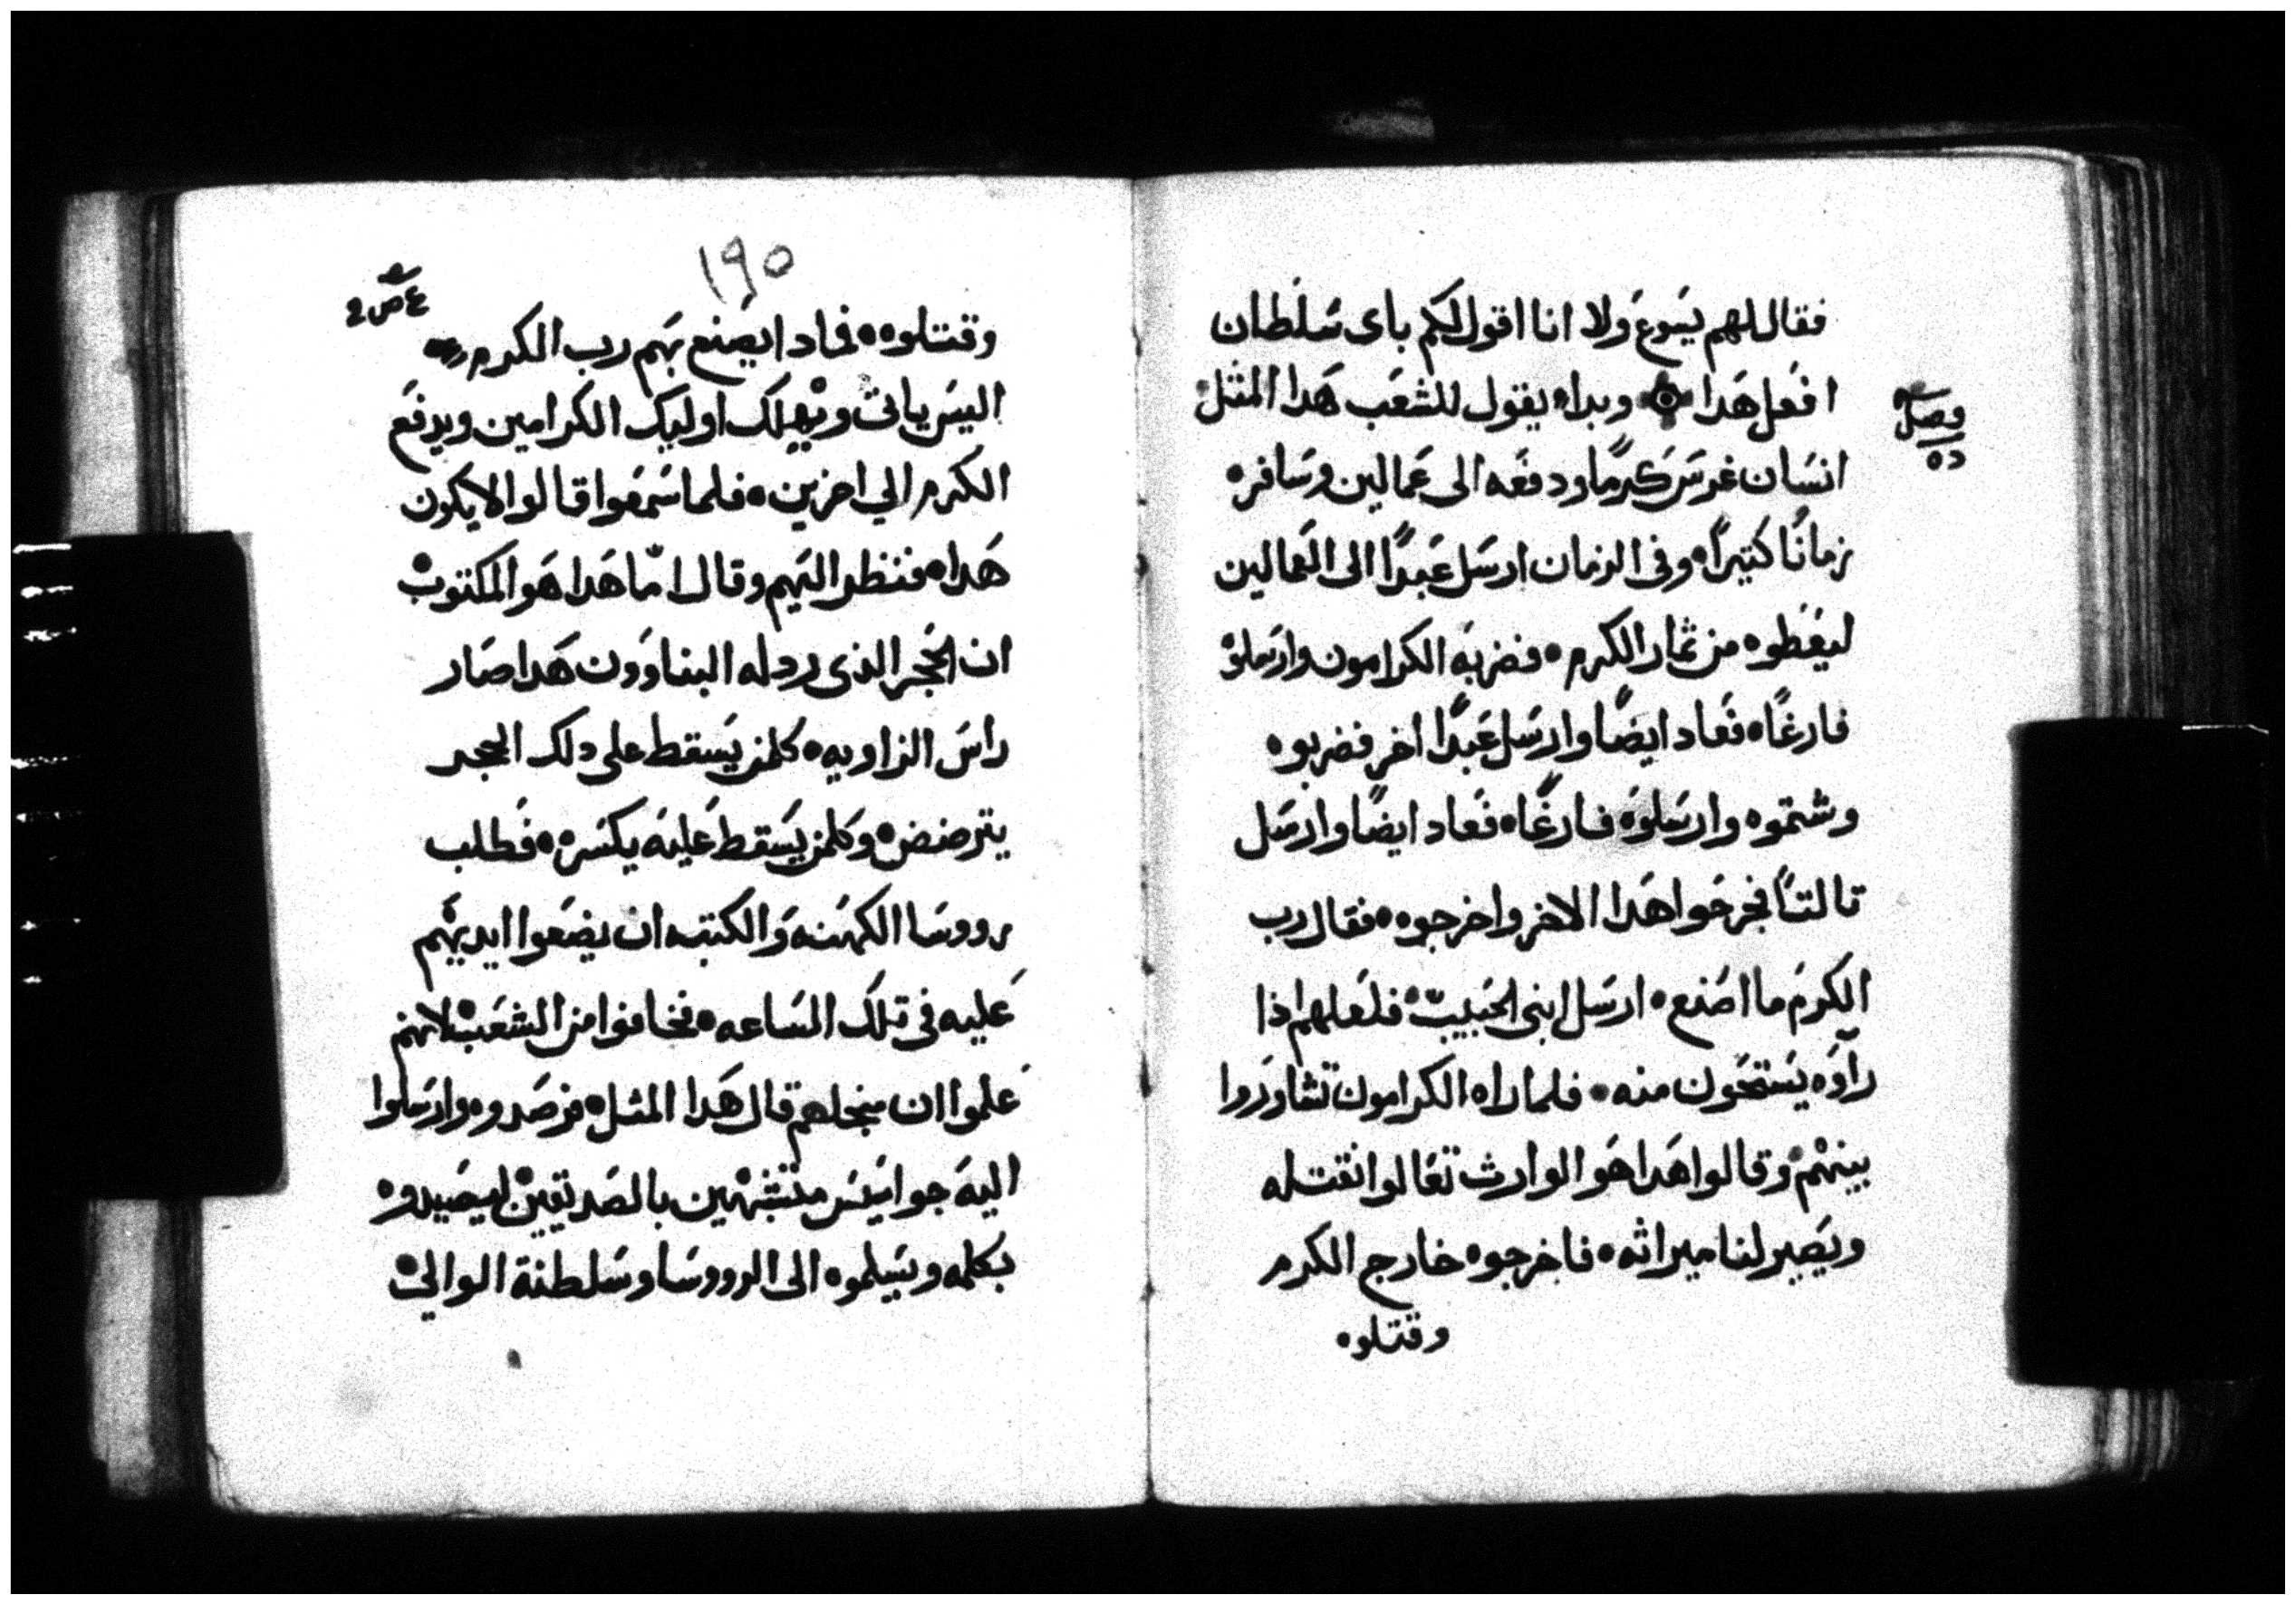 فقال لهم يسوع ولا انا اقول لكم باى سلطان
افعل هدا ۞ وبدا يقول للشعب هدا المثل
فصل
انسان غرس كرمًا ودفعه الى عمالين وسافر
زمانًا كتيرًا وفى الزمان ارسل عبدًا الى العمالين
ليعطوه من ثمار الكرم فضربه الكرامون وارسلوه
فارغًا فعاد ايضًا وارسل عبدًا اخر فضربوه
وشتموه وارسلوه فارغًا فعاد ايضًا وارسل
تالتًا فجرحوا هدا الاخر واخرجوه فقال رب
الكرم ما اصنع ارسل ابنى الحبيب فلعلهم اذا
رآوه يستحون منه فلما راه الكرامون تشاوروا
بينهم وقالوا هدا هو الوارث تعالوا نقتله
ويصير لنا ميراثه فاخرجوه خارج الكرم
وقتلوه
١٩٥
وقتلوه فماد ايصنع بهم رب الكرم
اليس ياتى ويهلك اوليك الكرامين ويدفع
الكرم الي اخرين فلما سمعوا قالوا لا يكون
هدا فنظر اليهم وقال امّا هدا هو المكتوب
ان الحجر الذى ردله البناوون هدا صار
راس الزاويه كلمن يسقط على دلك الحجر
يترضض وكلمن يسقط عليه يكسره فطلب
رووسا الكهنه والكتبه ان يضعوا ايديهم
عليه فى تلك الساعه فخافوا من الشعب لانهم
علموا ان منجلهم قال هدا المثل فرصدوه وارسلوا
اليه جواسيس متشبهين بالصديقين ليصيدوه
بكلمه ويسلموه الى الرووسا وسلطنة الوالي